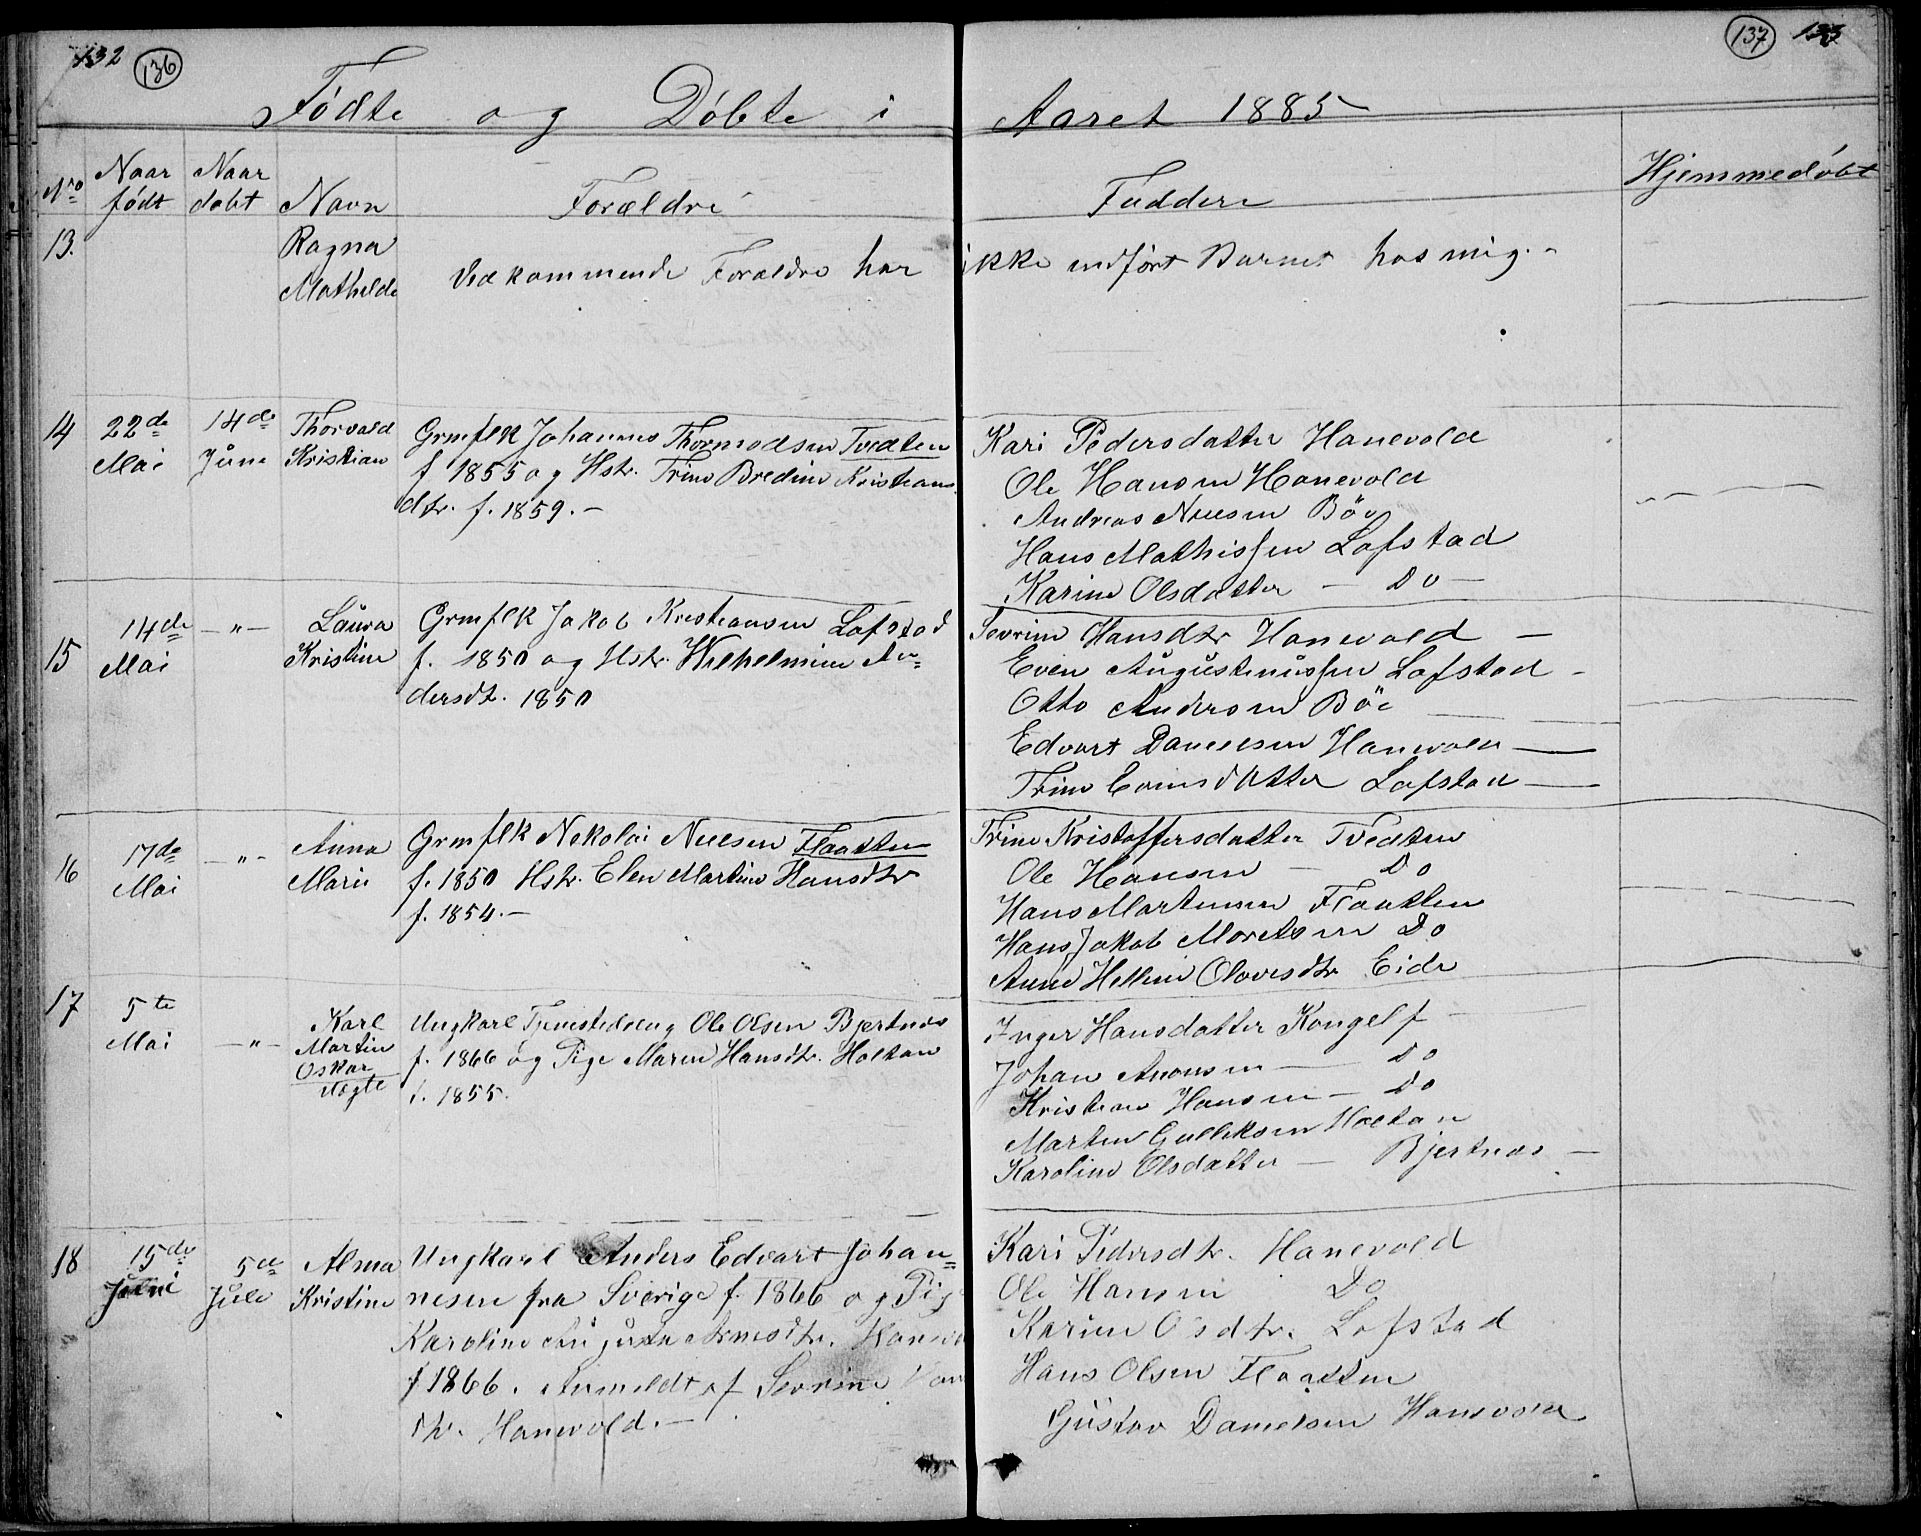 132 136
137 133
Fødte og Døbte i Aaret 1885
No Naar født Naar døbt Navn Forældre Faddere Hjemmedøbt
13. Ragna Mathilde Vedkommende Forældre har ikke indført Barnet hos mig. -
14 22de Mai 14de Juni Thorvald Kristian
Grmflk Johannes Thormodsen Tvedten
f 1855 og Hstr. Trine Bredine Kristians
dtr. f. 1859. -
Kari Pedersdatter Hanevold
Ole Hansen Hanevold
Andreas Nielsen Böe
Hans Mathissen Lofstad
Karine Olsdatter - Do -
15 14de Mai - " - Laura Kristine
Grmflk Jakob Kristiansen Lofstad
f. 1850 og Hstr. Wilhelmine An=
dersdt. 1850
Sevrine Hansdtr Hanevold -
Even Augustinussen Lofstad -
Otto Andersen Böe
Edvart Danielsen Hanevold -
Trine Evensdatter Lofstad -
16 17de Mai - " - Anna Marie
Grmflk Nekolai Nielsen Flaatten
f. 1850 Hstr. Elen Martine Hansdtr
f. 1854. -
Trine Kristoffersdatter Tvedten
Ole Hansen - Do
Hans Martinsen Flaatten
Hans Jakob Moretsen Do
Anne Helline Olavesdtr Eide
17 5te Mai - " - Karl Martin Oskar uægte
Ungkarl Tjenestedreng Ole Olsen Bjertnæs
f. 1866 og Pige Maren Hansdtr. Holtan
f. 1855.
Inger Hansdatter Kongelf -
Johan Aronsen - Do
Kristian Hansen - Do
Martin Gulliksen Holtan
Karoline Olsdatter - Bjertnæs -
18 15de Juni 5te Juli Alma Kristine
Ungkarl Anders Edvart Johan=
nesen fra Sverige f. 1866 og Pige
Karoline Augusta Arnesdtr. Hanevo
f 1866. Anmeldt af Sevrine Han
dtr. Hanevold. -
Kari Pedersdtr. Hanevold
Ole Hansen Do
Karine Olsdtr. Lofstad
Hans Olsen Flaatten
Gustav Danielsen Hanevold